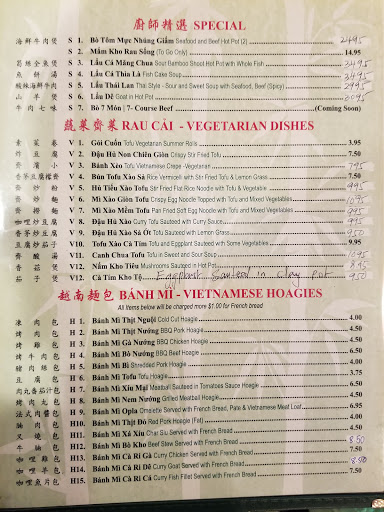 廚師精選 SPECIAL
海鮮牛肉煲 S 1. Bò Tôm Mực Nhúng Giấm Seafood and Beef Hot Pot (2) 2495
S 2. Mắm Kho Rau Sống (To Go Only) 14.95
筍總全魚煲 S 3. Lẩu Cá Măng Chua Sour Bamboo Shoot Hot Pot with Whole Fish 3495
魚餅湯 S 4. Lẩu Cá Thìa Là Fish Cake Soup 3495
酸辣海鮮牛肉 S 5. Lẩu Thái Lan Thai Style - Sour and Sweet Soup with Seafood, Beef (Spicy) 2995
山羊煲 S 6. Lẩu Dê Goat in Hot Pot 3095
牛肉七味 S 7. Bò 7 Món | 7- Course Beef (Coming Soon)
蔬菜齋菜 RAU CẢI - VEGETARIAN DISHES
素菜卷 V 1. Gỏi Cuốn Tofu Vegetarian Summer Rolls 3.95
炸豆腐 V 2. Đậu Hủ Non Chiên Giòn Crispy Stir Fried Tofu 7.50
齋薄餅 V 3. Bánh Xèo Tofu Vietnamese Crepe -Vegetarian 795
香茅豆腐檬齋 V 4. Bún Tofu Xào Sả Rice Vermicelli with Stir Fried Tofu & Lemon Grass 7.50
齋炒粉 V 5. Hủ Tiếu Xào Tofu Stir Fried Flat Rice Noodle with Tofu & Vegetable 995
齋炒麵 V 6. Mì Xào Giòn Tofu Crispy Egg Noodle Topped with Tofu and Mixed Vegetables 1095
齋撈麵 V 7. Mì Xào Mềm Tofu Pan Fried Soft Egg Noodle with Tofu and Mixed Vegetables 1095
咖哩炒豆腐 V 8. Đậu Hủ Xào Cary Tofu Sauteed with Curry Sauce 995
香茅炒豆腐 V 9. Đậu Hủ Xào Sả Ớt Tofu Sauteed with Lemon Grass 950
豆腐炒茄子 V10. Tofu Xào Cà Tím Tofu and Eggplant Sauteed with Some Vegetables 9.95
齋酸湯 V11. Canh Chua Tofu Tofu in Sweet and Sour Soup 1095
香菇煲 V12. Nấm Kho Tiêu Mushrooms Sauteed in Hot Pot 8.95
茄子煲 V12. Cà Tím Kho Tộ Eggplant Sauteed in Clay Pot 950
越南麵包 BÁNH MÌ - VIETNAMESE HOAGIES
All items below will be charged more $1.00 for French bread
凍肉包 H 1. Bánh Mì Thịt Nguội Cold Cut Hoagie 4.00
烤肉包 H 2. Bánh Mì Thịt Nướng BBQ Pork Hoagie 4.50
烤雞包 H 3. Bánh Mì Gà Nướng BBQ Chicken Hoagie 4.50
烤牛肉包 H 4. Bánh Mì Bò Nướng BBQ Beef Hoagie 6.50
豬肉絲包 H 5. Bánh Mì Bì Shredded Pork Hoagie 4.00
豆腐包 H 6. Bánh Mì Tofu Tofu Hoagie 3.75
肉丸番茄汁包 H 7. Bánh Mì Xíu Mại Meatball Sauteed in Tomatoes Sauce Hoagie 4.50
烤肉丸包 H 8. Bánh Mì Nem Nướng Grilled Meatball Hoagie 4.50
法式肉醬包 H 9. Bánh Mì Opla Omslette Served with French Bread, Pate & Vietnamese Meat Loaf 6.95
腩肉包 H10. Bánh Mì Thịt Đỏ Red Pork Hoagie (Fat) 4.00
叉燒包 H11. Bánh Mì Xá Xíu Char Siu Served with French Bread 4.50
牛腩包 H12. Bánh Mì Bò Kho Beef Stew Served with French Bread 8.50
咖哩雞包 H13. Bánh Mì Cà Ri Gà Curry Chicken Served with French Bread 7.50
咖哩羊包 H14. Bánh Mì Cà Ri Dê Curry Goat Served with French Bread 8.50
咖哩魚片包 H15. Bánh Mì Cà Ri Cá Curry Fish Fillet Served with French Bread 7.50